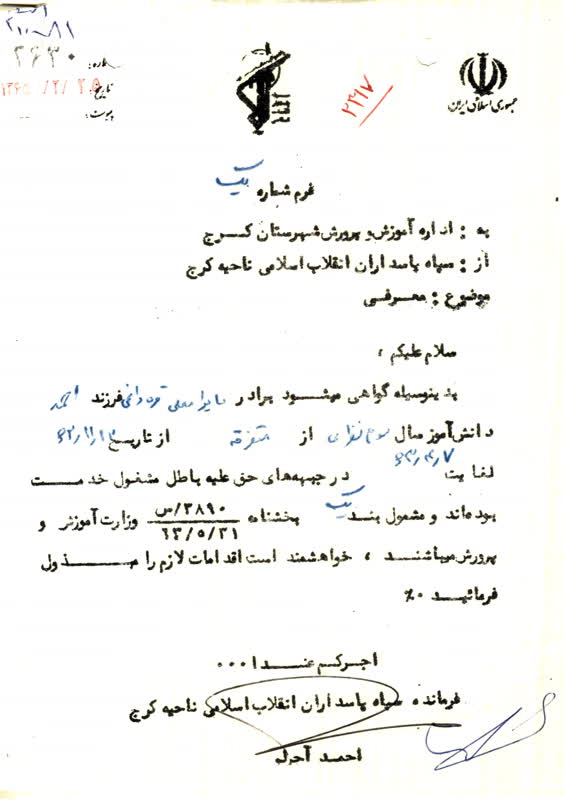 ۲۶۳۰
شماره:
تاریخ: ۱۳۶۵/۲/۲۵
پیوست:
۲۴۱۷
جمهوری اسلامی ایران
فرم شماره یک
به : اداره آموزش و پرورش شهرستان کرج
از : سپاه پاسداران انقلاب اسلامی ناحیه کرج
موضوع : معرفی
سلام علیکم ،
بدینوسیله گواهی میشود برادر فرزند احمد
دانش‌آموز سال سوم از متفرقه از تاریخ ۶۲/۱/۱۲
لغایت ۶۲/۴/۷ در جبهه‌های حق علیه باطل مشغول خدمت
بوده‌اند و مشمول بند یک بخشنامه ۳۸۹۰/س ۶۳/۵/۳۱ وزارت آموزش و
پرورش میباشند ، خواهشمند است اقدامات لازم را مبذول
فرمائید ۰٪
اجرکم عندا ۰۰۰
فرمانده سپاه پاسداران انقلاب اسلامی ناحیه کرج
احمد